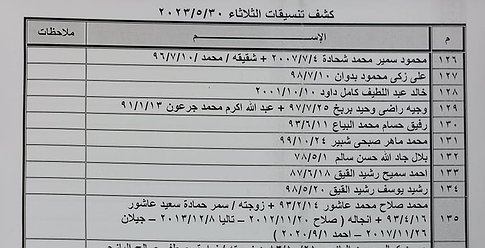 كشف تنسيقات الثلاثاء ٢٠٢٣/٥/٣٠
م الإســـم ملاحظات
١٢٦ محمود سمير محمد شحادة ٢٠٠٧/٧/٤ + شقيقه / محمد ٩٦/٧/١٠
١٢٧ على زكى محمود بدوان ٩٨/٧/١٠
١٢٨ خالد عبد اللطيف كامل داود ٢٠٠١/١٠/١٠
١٢٩ وجيه راضى وحيد بريخ ٩٧/٧/٢٥ + عبد الله اكرم محمد جرعون ٩١/١/١٣
١٣٠ رفيق حسام محمد البياع ٩٣/٢/١١
١٣١ محمد ماهر صبحى شبير ٩٩/١٠/٢٤
١٣٢ بلال جاد الله حسن سالم ٧٨/٥/١
١٣٣ احمد سميح رشيد القيق ٨٧/٦/١٨
١٣٤ رشيد يوسف رشيد القيق ٩٨/٥/٢٠
١٣٥ محمد صلاح محمد عاشور ٩٣/٢/١٤ + زوجته / سمر حمادة سعيد عاشور
٩٣/٤/١٦ + انجاله ( صلاح ٢٠١٢/١١/٢٠ – تاليا ٢٠١٣/١٢/٨ – جيلان
٢٠١٧/١١/٢٦ – احمد ٢٠٢٠/٩/١ )